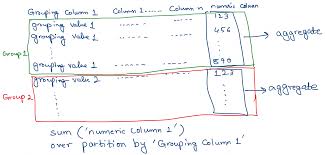 Grouping Column 1 Column 1..... Column n numeric column
grouping value 1 ...... ...... 123
grouping value 1 ...... ...... 456 → aggregate
Group 1
grouping value 1 ...... 890
grouping value 2 ...... 123
Group 2 → aggregate
sum ('numeric column 1')
over partition by 'Grouping Column 1'